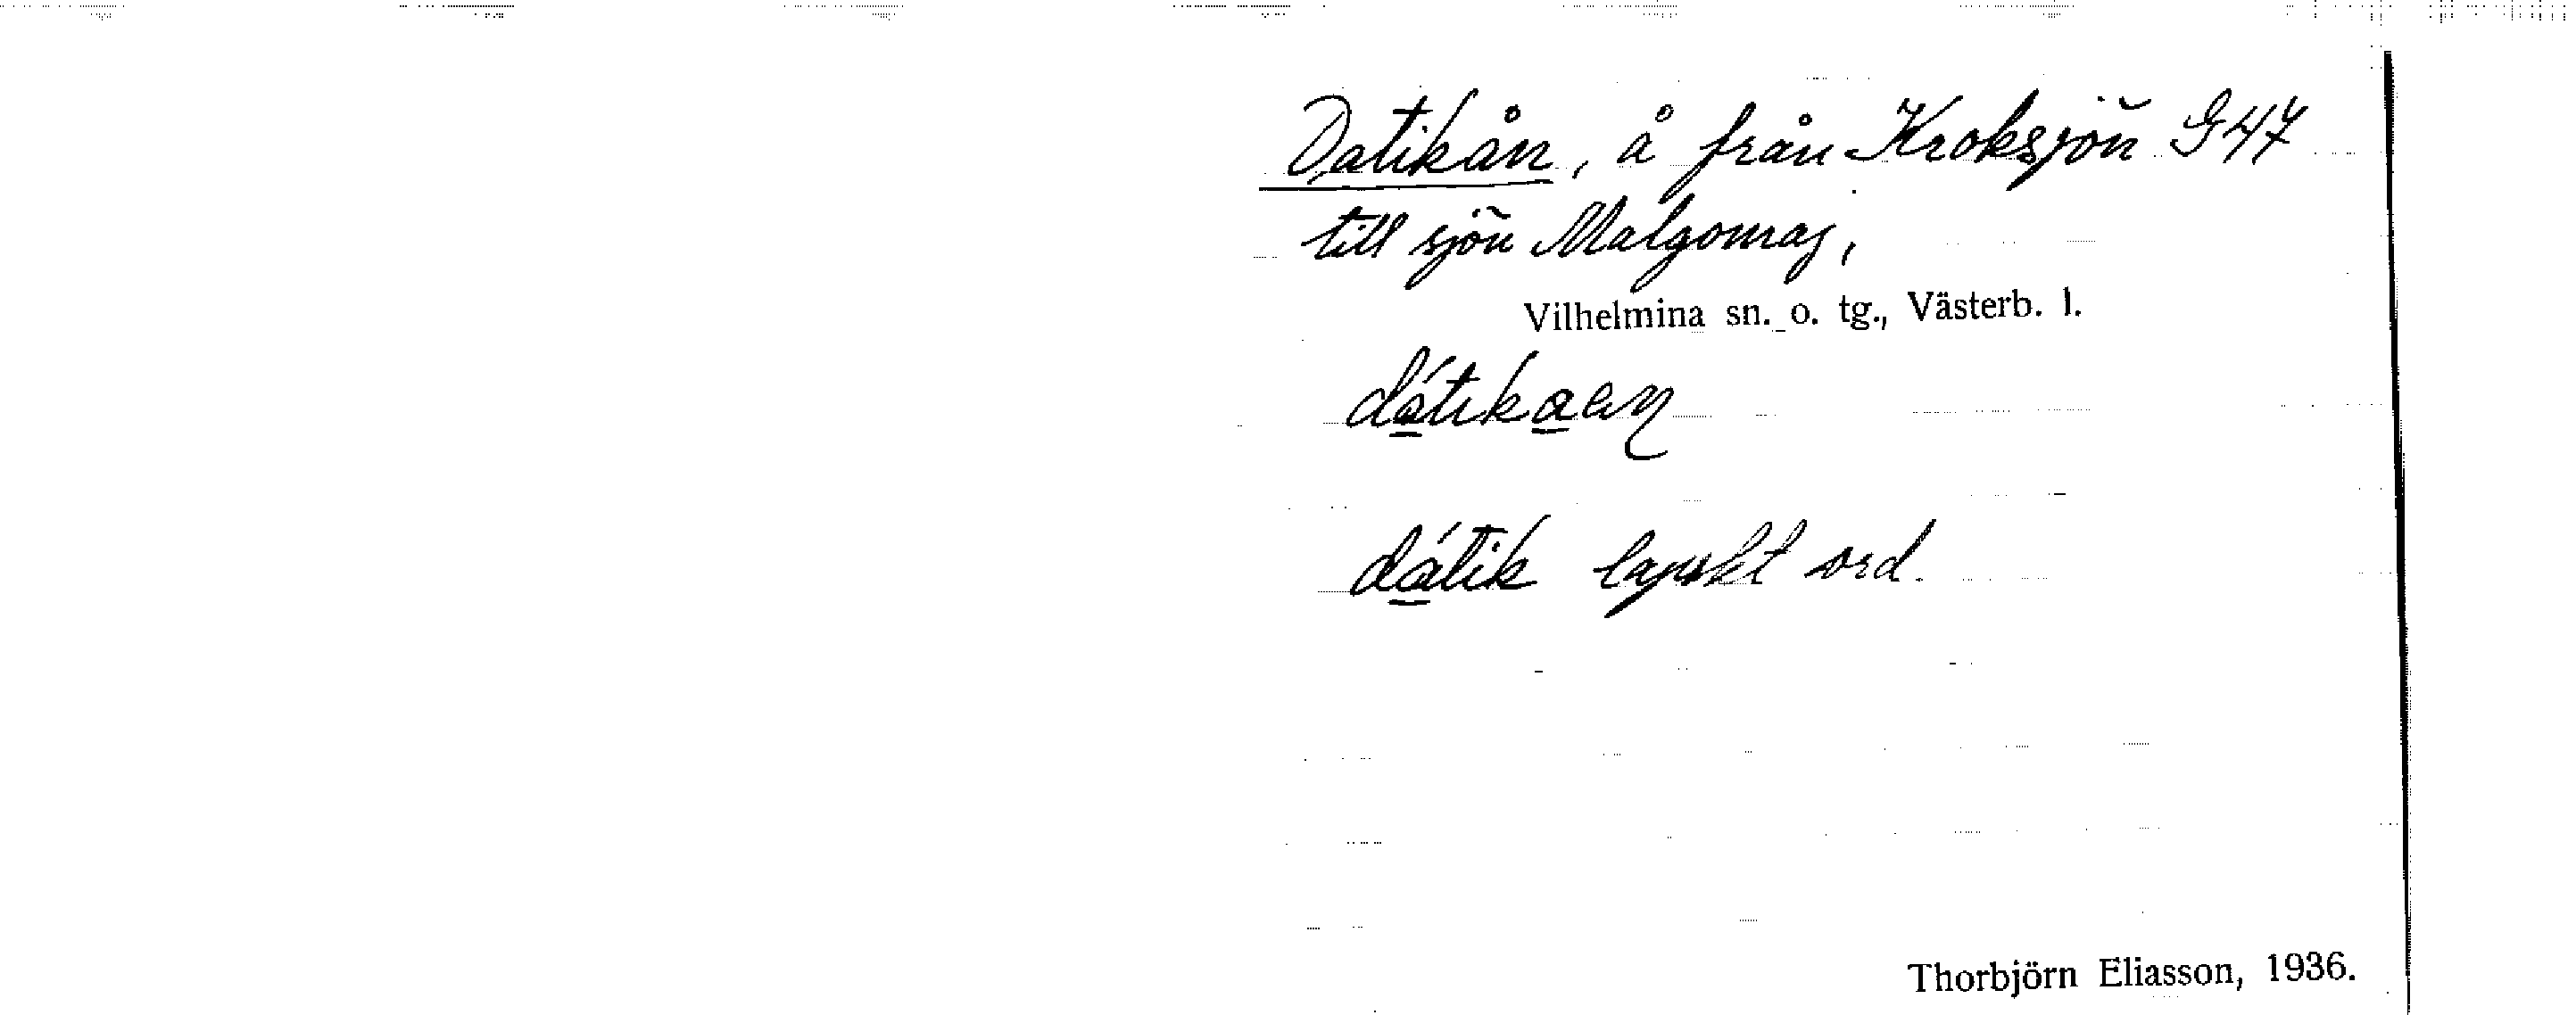 Datikån, å från Kroksjön G47
till sjön Malgomaj,
Vilhelmina sn. o. tg., Västerb. l.
dátik
dátik lapskt ord.
Thorbjörn Eliasson, 1936.